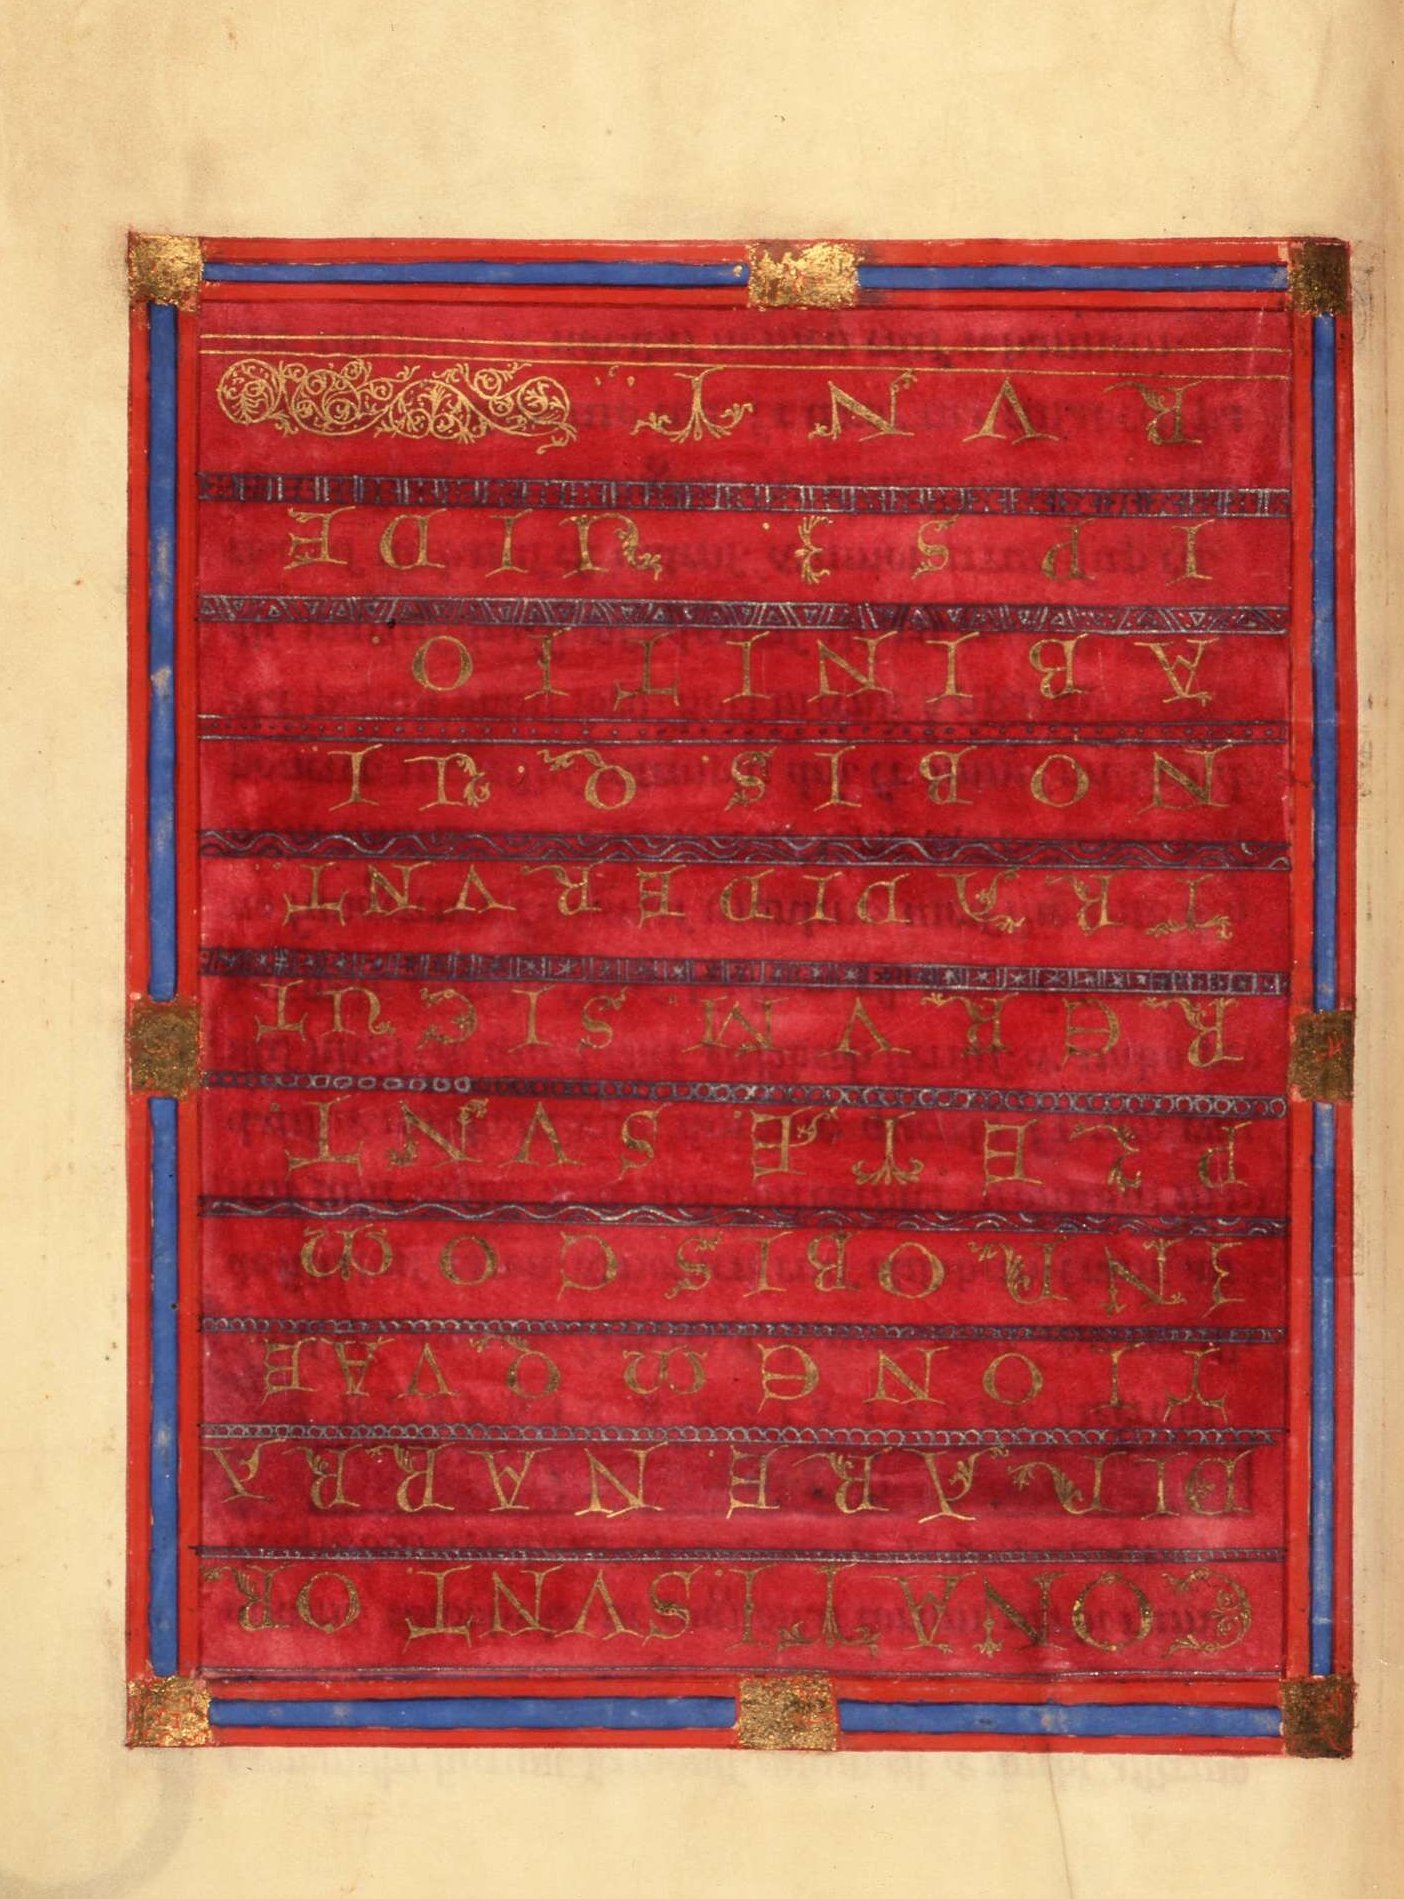 CONATI SVNT OR
DINARE NARRA
TIONEM QVAE
IN NOBIS COM
PLETÆ SVNT
RERVM SICUT
TRADIDERVNT
NOBIS QUI
AB INITIO
IPSI UIDE
RVNT